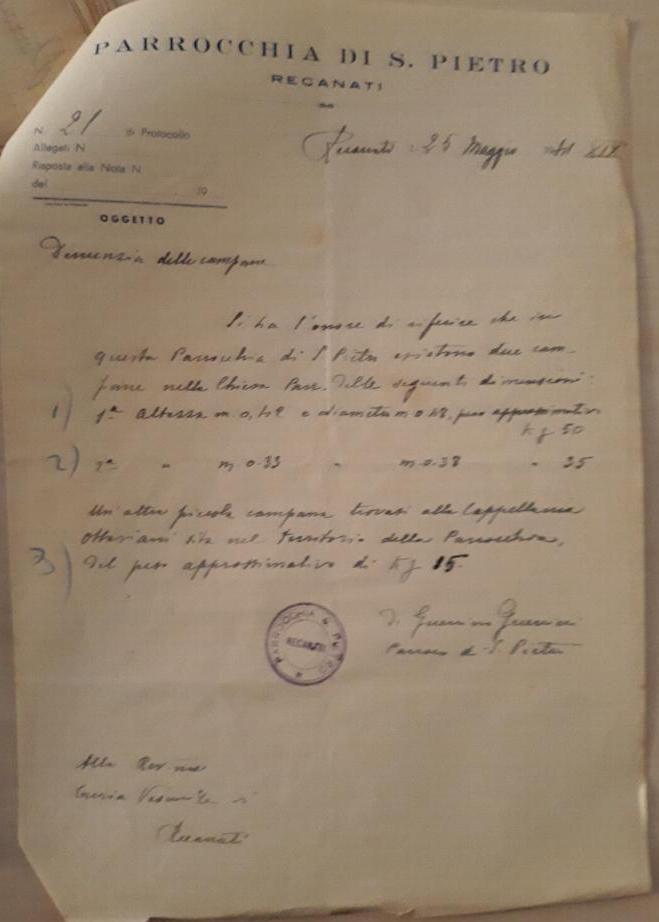 PARROCCHIA DI S. PIETRO
RECANATI
N. 21 di Protocollo
Allegati N
Risposta alla Nota N
del 19
OGGETTO
Recanati 25 Maggio
Denunzia delle campane
Si ha l'onore di riferire che in
questa Parrocchia di S. Pietro esistono due cam-
pane nella Chiesa Parr. delle seguenti dimensioni:
1) 1ª Altezza m. 0, e diametro m 0 peso approssimativo
Kg 50
2) 2ª " m 0.33 " m 0.38 " 35
Un'altra piccola campana trovasi alla Cappellania
Ottaviani sita nel territorio della Parrocchia,
3) del peso approssimativo di Kg 15.
D. Guerrino
Parroco di S. Pietro
PARROCCHIA S. PIETRO
RECANATI
Alla Rev.ma
Curia Vescovile di
Recanati